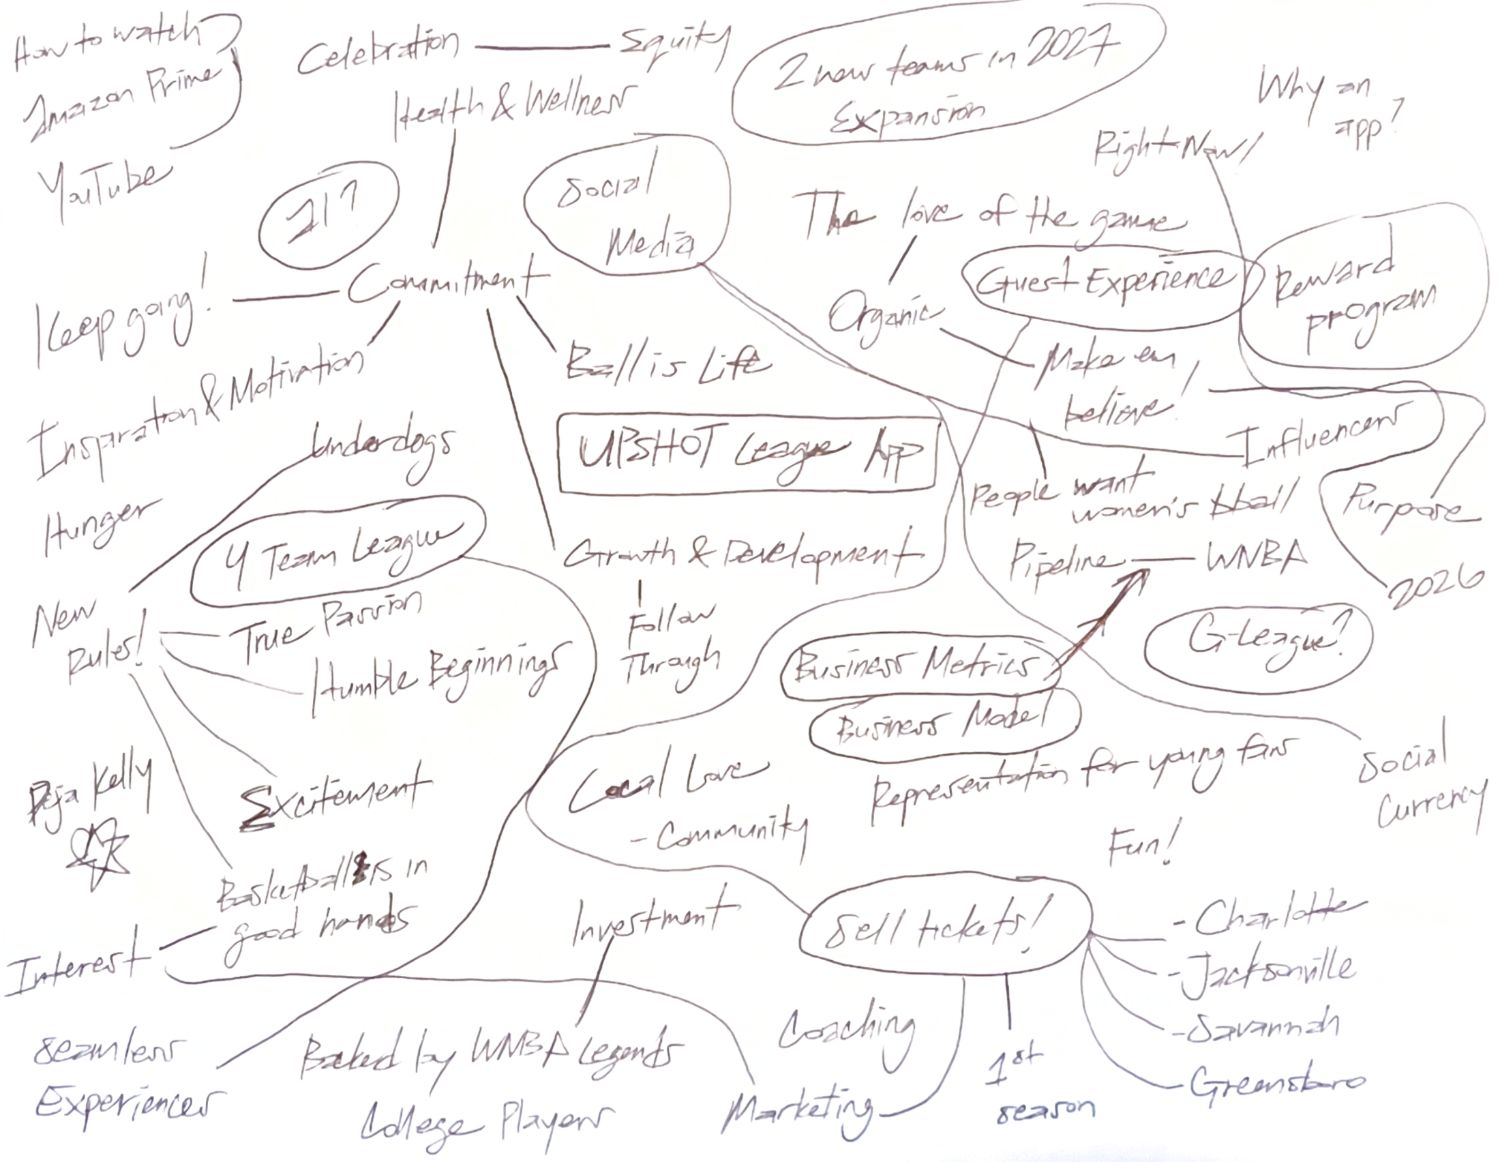 How to watch
Amazon Prime
YouTube
Celebration
Equity
Health & Wellness
2 new teams in 2027
Expansion
Why an
app?
Right Now!
Social
Media
The love of the game
Guest Experience
Reward
program
Organic
Make em
believe!
Commitment
Keep going!
Inspiration & Motivation
Ball is Life
Underdogs
UPSHOT League App
Influencers
People want
women's bball
Purpose
Hunger
4 Team League
Growth & Development
Pipeline
WNBA
2026
New
Rules!
True Passion
Humble Beginnings
Follow
Through
Business Metrics
G-League?
Business Model
Representation for young fans
Social
Currency
Local Love
- Community
Deja Kelly
Excitement
Fun!
Basketball is in
good hands
Interest
Investment
Sell tickets!
- Charlotte
- Jacksonville
- Savannah
- Greensboro
Coaching
1st
season
Seamless
Experiences
Backed by WNBA Legends
College Players
Marketing